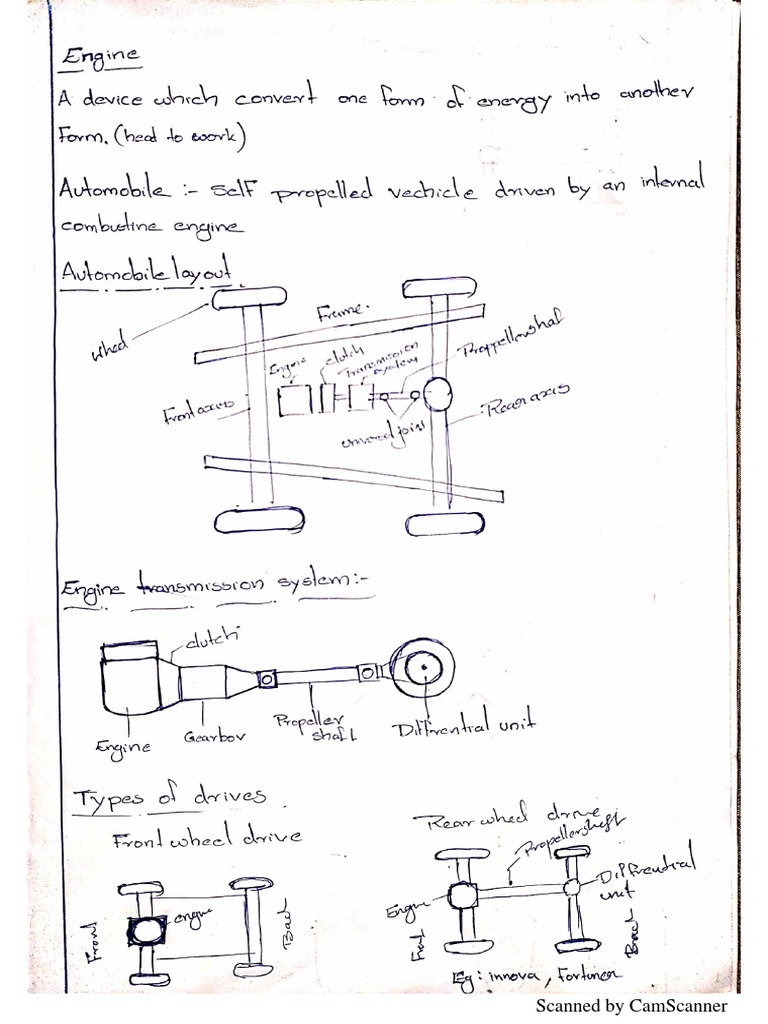 Engine
A device which convert one form of energy into another
form. (head to work)
Automobile :- self propelled vechicle driven by an internal
combustine engine
Automobile layout
wheel
Frame.
Engine
clutch
Transmission
system
Proppellershaf
Front axies
univeral joint
Rear axis
Engine transmission system:-
clutch
Engine
Gearbox
Propeller
shaft
Diffrential unit
Types of drives
Front wheel drive
engine
Front
Back
Rear wheel drive
Propellersheft
Engine
Diffrential
unit
Front
Back
Eg: innova, Fortuner
Scanned by CamScanner